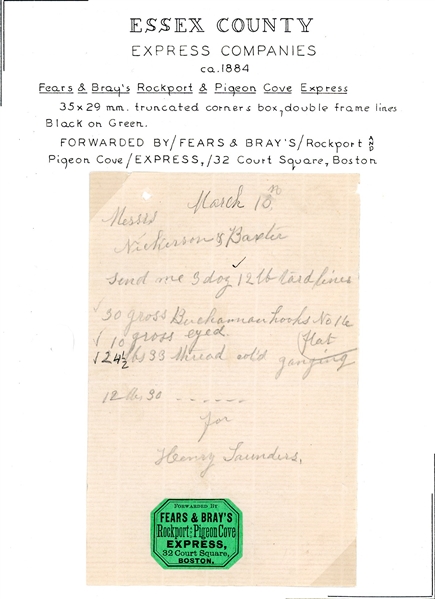 ESSEX COUNTY
EXPRESS COMPANIES
ca.1884
Fears & Bray's Rockport & Pigeon Cove Express
35x29 mm. truncated corners box, double frame lines
Black on Green.
FORWARDED BY/FEARS & BRAY'S/Rockport AND
Pigeon Cove/EXPRESS,/32 Court Square, Boston
March 18th
Messrs
Nickerson & Baxter
Send me 3 doz 12 lb lines
30 gross hooks No 16
10 gross eyed flat
24½ lbs 33 thread cold ganging
12 lbs 30 - - - - - -
for
Henry Saunders.
FORWARDED BY
FEARS & BRAY'S
Rockport & Pigeon Cove
EXPRESS,
32 Court Square,
BOSTON.